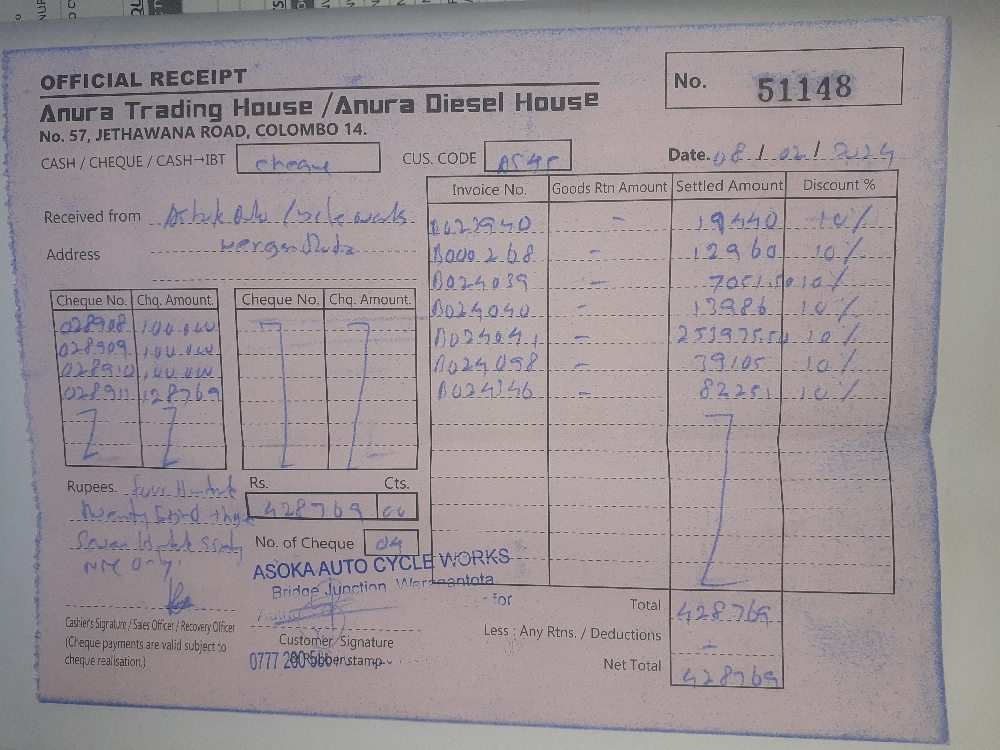 OFFICIAL RECEIPT
No. 51148
Anura Trading House / Anura Diesel House
No. 57, JETHAWANA ROAD, COLOMBO 14.
CASH / CHEQUE / CASH→IBT cheque CUS. CODE Date. 08 / 02 / 2024
Received from
Address
Invoice No. Goods Rtn Amount Settled Amount Discount %
B023940 - 19440 10%
B000268 - 12960 10%
B024039 - 7051.50 10%
B024040 - 13986 10%
B024041 - 253975.50 10%
B024098 - 39105 10%
B024346 - 82251 10%
Cheque No. Chq. Amount. Cheque No. Chq. Amount.
028908 100.000
028909 100.000
028910 100.000
028911 128769
Rupees. Four Hundred
Twenty Eight
Seven Hundred Sixty
Nine Only.
Rs. Cts.
428769 00
No. of Cheque 04
ASOKA AUTO CYCLE WORKS
Bridge Junction
for
Customer Signature
Cashier's Signature / Sales Officer / Recovery Officer
(Cheque payments are valid subject to
cheque realisation.)
Total 428769
Less : Any Rtns. / Deductions -
Net Total 428769